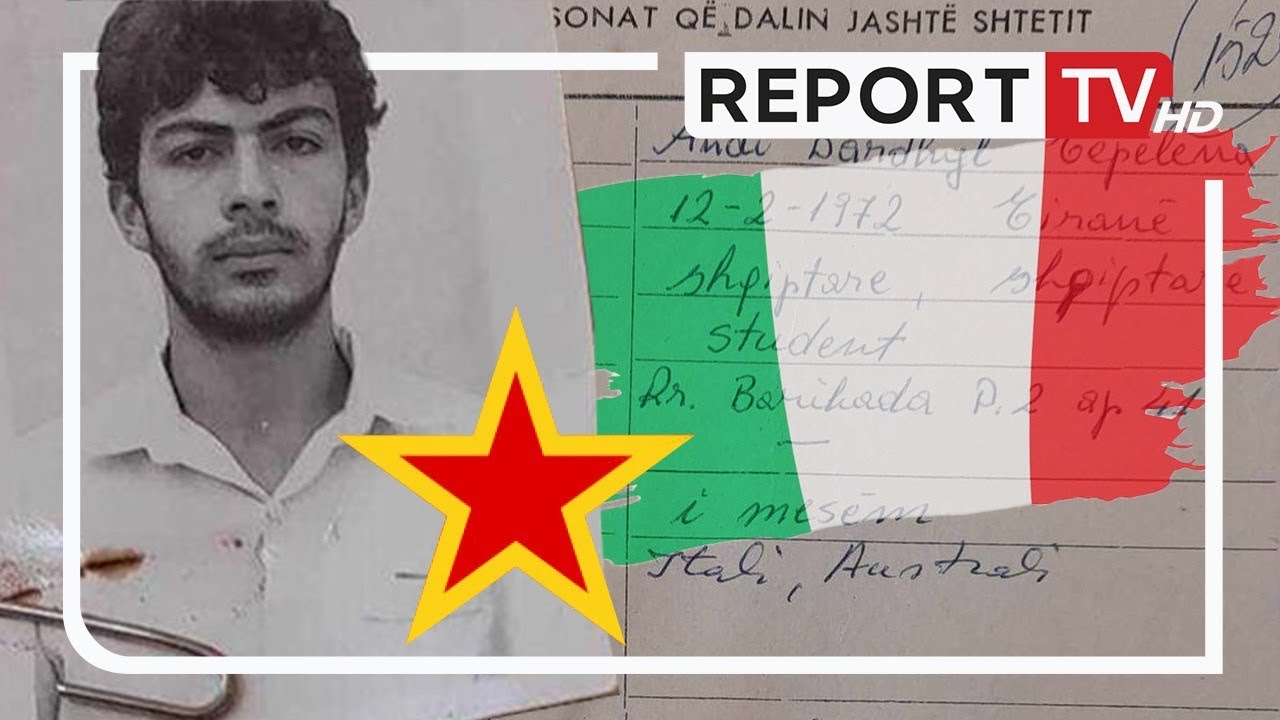 SONAT QË DALIN JASHTË SHTETIT
152
REPORT TV HD
Andi Bardhyl Tepelena
12-2-1972 Tiranë
shqiptare, shqiptare
student
Rr. Barikada P.2 ap 41
—
i mesëm
Itali, Australi